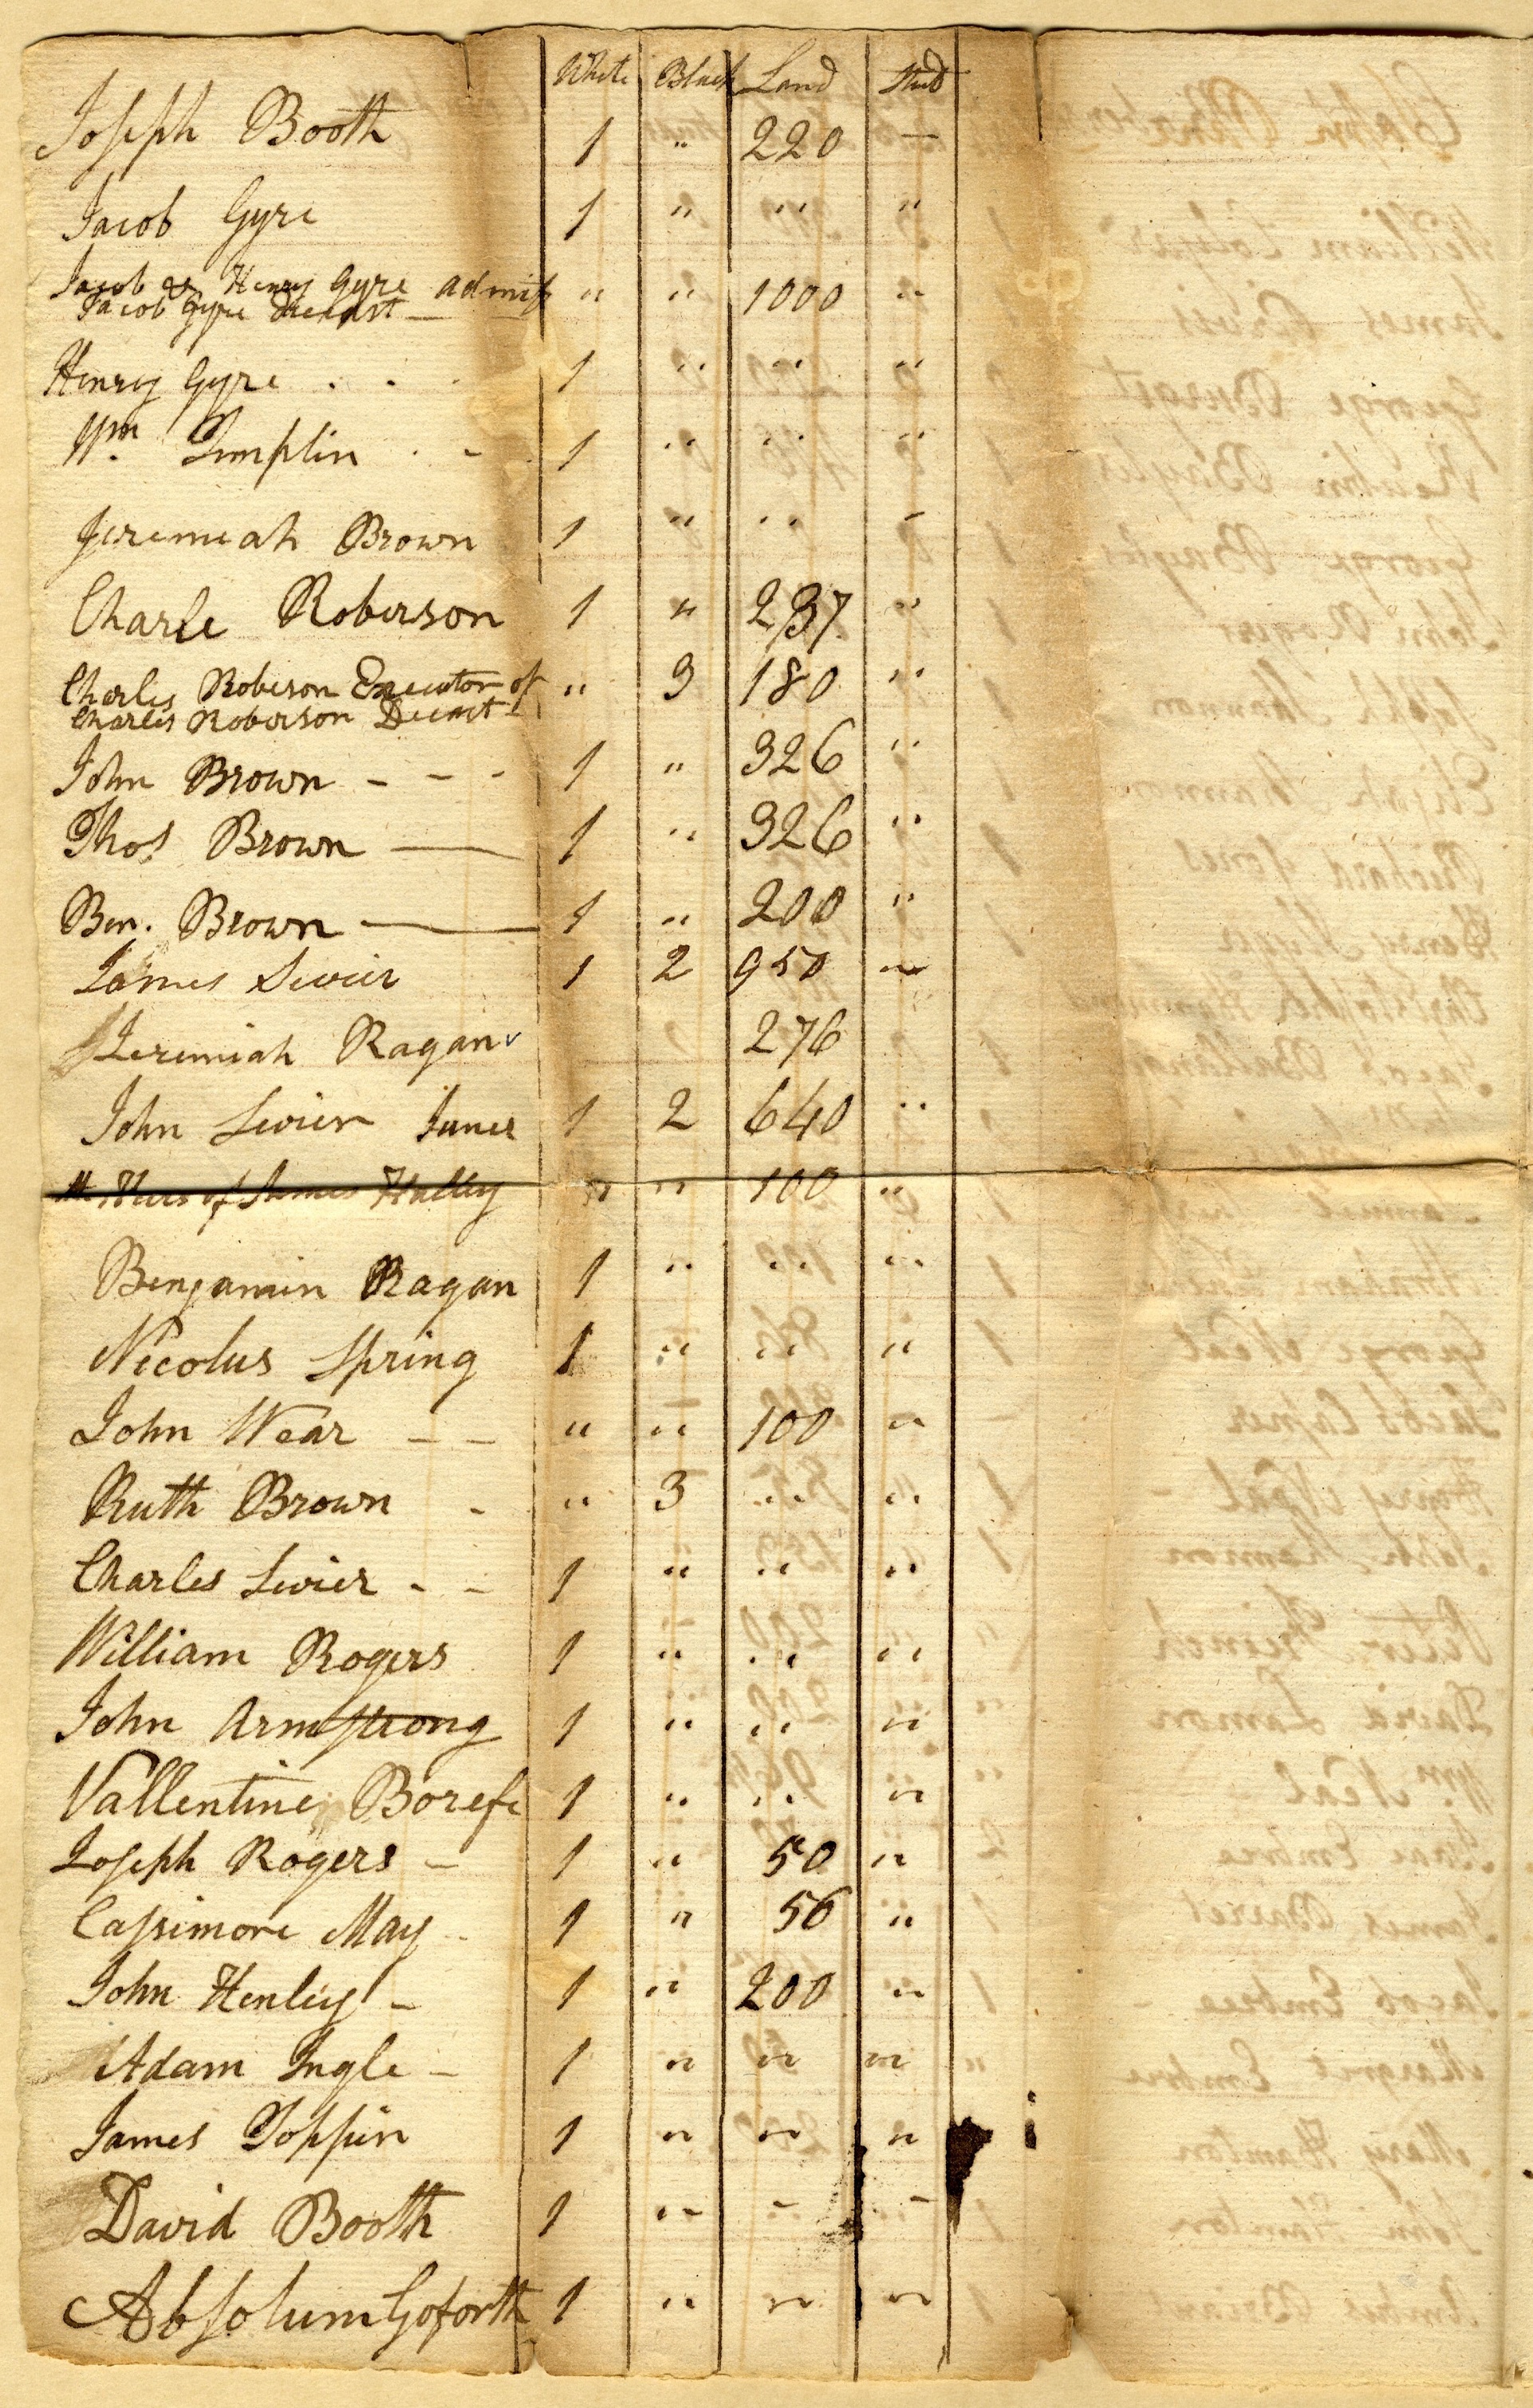 White Black Land Stud
Joseph Booth 1 " 220 —
Jacob Gyre 1 " " "
Jacob & Henry Gyre admis " " 1000 "
Jacob Gyre Deceast —
Henry Gyre . . . 1 " " "
Wm. Timplin . - 1 " " "
Jeremiah Brown 1 " " -
Charle Roberson 1 " 237 "
Charles Roberson Executor of " 3 180 "
Charles Roberson Deceast
John Brown - - - 1 " 326 "
Thos Brown — 1 " 326 "
Ben. Brown — 1 " 200 "
James Sevier 1 2 950 "
Jeremiah Ragan 276
John Sevier Juner 1 2 640 "
Heirs of James Halley " " 100 "
Benjamin Ragan 1 " " "
Nicolus Spring 1 " " "
John Wear - - " " 100 "
Ruth Brown - " 3 " "
Charles Sevier - - 1 " " "
William Rogers 1 " " "
John Armstrong 1 " " "
Vallentine 1 " " "
Joseph Rogers - 1 " 50 "
Cassimore May - 1 " 56 "
John Henley - 1 " 200 "
Adam Ingle - 1 " " "
James Toppin 1 " " "
David Booth 1 " " -
Absolum Goforth 1 " " "